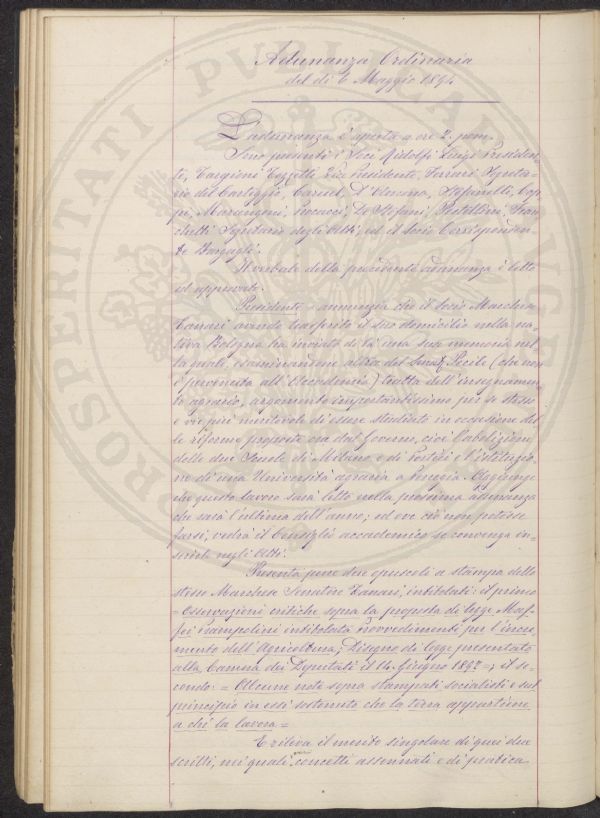 Adunanza Ordinaria
del dì 6 Maggio 1894
L'adunanza è aperta a ore 2. pom.
Sono presenti i Soci Ridolfi Luigi Presiden-
te, Targioni Tozzetti Vice Presidente, Ferrari Segreta-
rio del Carteggio, Caruel, D'Ancona, Stefanelli,
Marangoni, De Stefani, Pestellini, Fran-
chetti Segretario degli Atti, ed il Socio Corrisponden-
te Bargagli.
Il verbale della precedente adunanza è letto
ed approvato.
Presidente = annunzia che il Socio Marchese
Tanari avendo trasferito il suo domicilio nella na-
tiva Bologna ha inviato di là una sua memoria nel
la quale, esaminandone altra del Senat. Pecile (che non
è pervenuta all'Accademia) tratta dell'insegnamen-
to agrario, argomento importantissimo per se stesso
e vie più meritevole di essere studiato in occasione del
le riforme proposte ora dal Governo, cioè l'abolizione
delle due Scuole di Milano e di Portici e l'istituzio-
ne di una Università agraria a Perugia. Aggiunge
che questo lavoro sarà letto nella prossima adunanza
che sarà l'ultima dell'anno; ed ove ciò non potesse
farsi, vedrà il Consiglio accademico se convenga in-
serirlo negli Atti.
Presenta pure due opuscoli a stampa dello
stesso Marchese Senatore Tanari, intitolati: il primo
= Osservazioni critiche sopra la proposta di legge Maf-
fei Prampolini intitolata Provvedimenti per l'incre-
mento dell'Agricoltura; Disegno di legge presentato
alla Camera dei Deputati il 14 Giugno 1893 =; il se-
condo: = Alcune note sopra stampati socialisti e sul
principio in essi sostenuto che la terra appartiene
a chi la lavora =
E rileva il merito singolare di quei due
scritti, nei quali concetti assennati e di pratica
PROSPERITATI PUBLICAE AUGENDAE